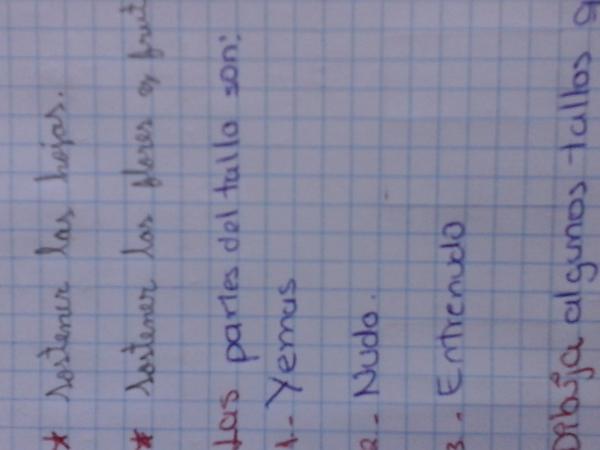 * sostener las hojas.
* sostener las flores y frut
Las partes del tallo son:
1.- Yemas
2.- Nudo.
3.- Entrenudo
Dibuja algunos tallos q